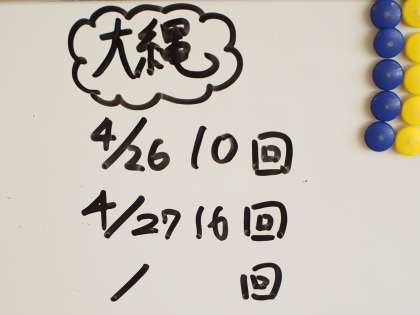 大縄
4/26 10回
4/27 16回
/ 回